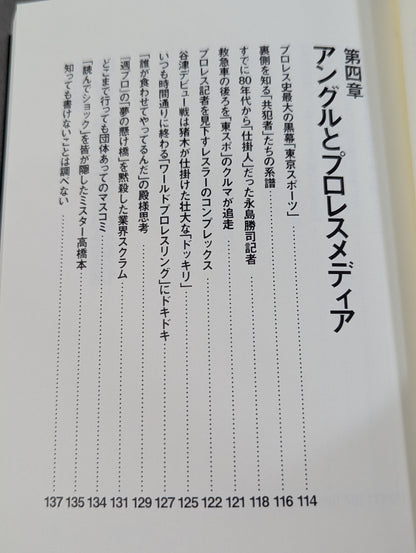 第四章
アングルとプロレスメディア
プロレス史最大の黒幕「東京スポーツ」 114
裏側を知る「共犯者」たちの系譜 116
すでに80年代から「仕掛人」だった永島勝司記者 118
救急車の後ろを「東スポ」のクルマが追走 121
プロレス記者を見下すレスラーのコンプレックス 122
谷津デビュー戦は猪木が仕掛けた壮大な「ドッキリ」 125
いつも時間通りに終わる「ワールドプロレスリング」にドキドキ 127
「誰が食わせてやってるんだ」の殿様思考 129
『週プロ』の「夢の懸け橋」を黙殺した業界スクラム 131
どこまで行っても団体あってのマスコミ 134
「読んでショック」を皆が隠したミスター高橋本 135
知っても書けないことは調べない 137